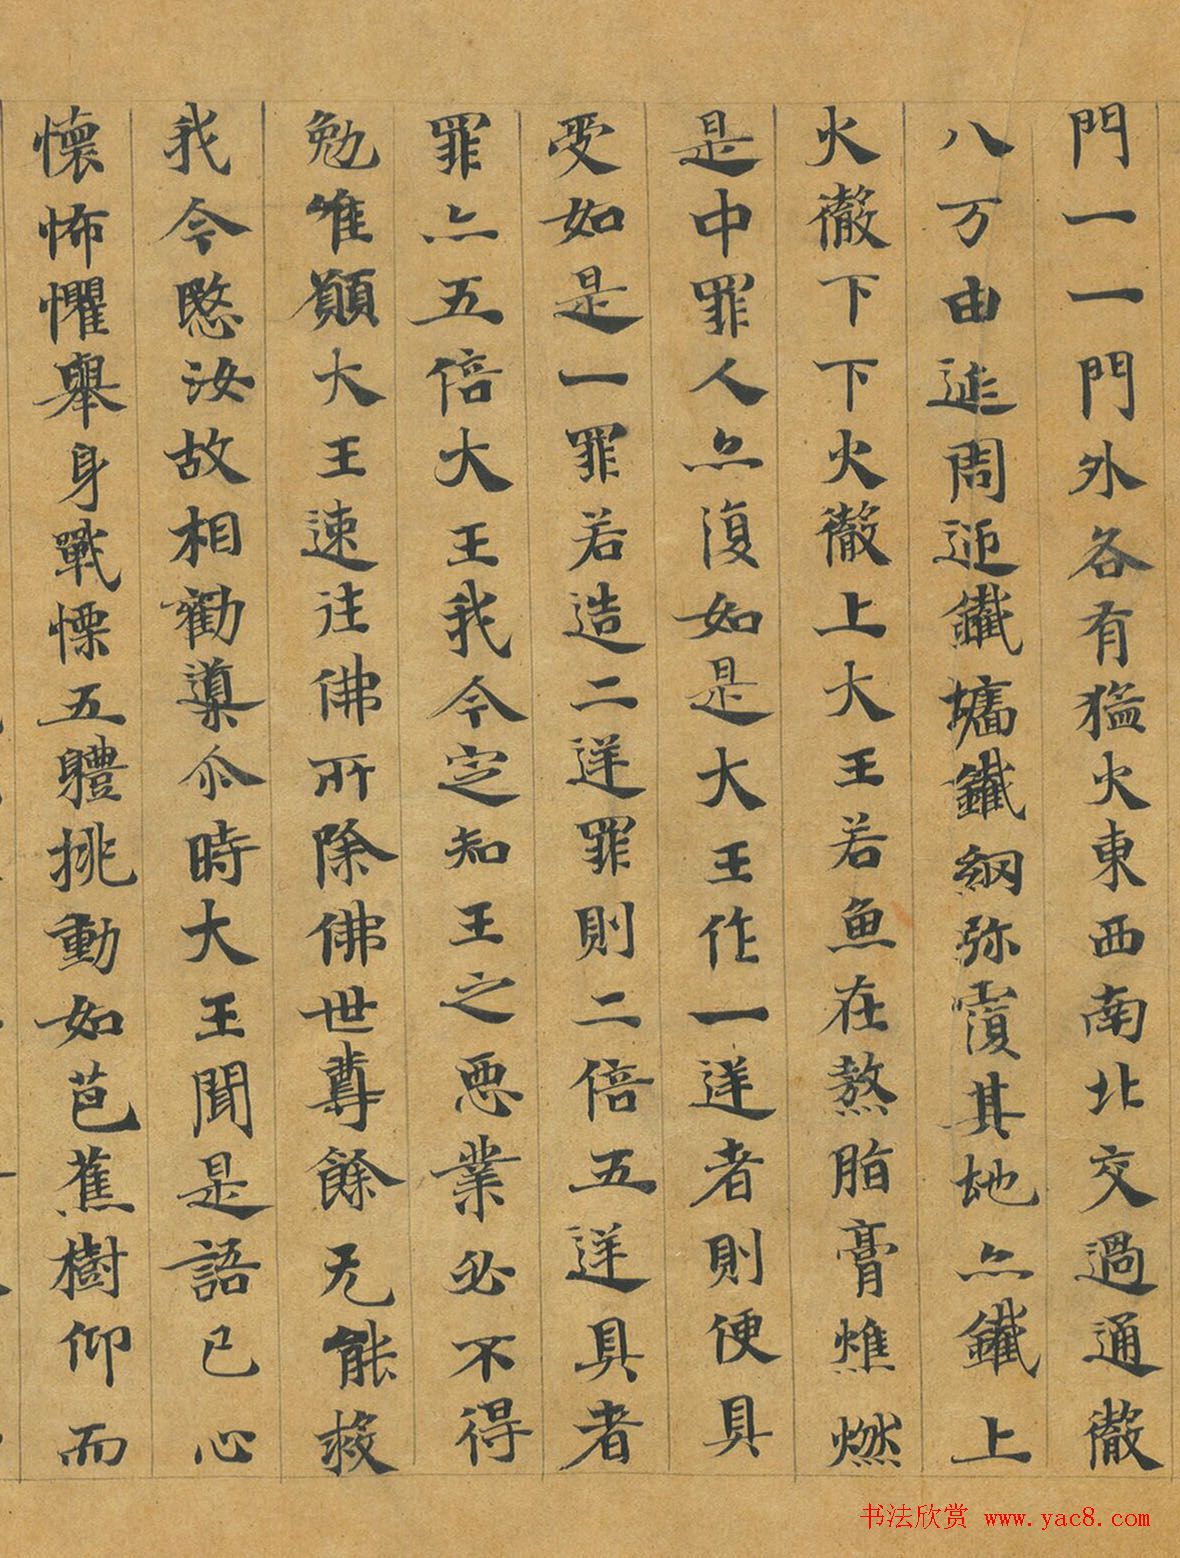 門一一門外各有猛火東西南北交過通徹
八万由延周迊鐵墻鐵網弥覆其地亦鐵上
火徹下下火徹上大王若魚在熬脂膏燋燃
是中罪人亦復如是大王作一逆者則便具
受如是一罪若造二逆罪則二倍五逆具者
罪亦五倍大王我今定知王之惡業必不得
勉唯願大王速往佛所除佛世尊餘无能救
我今愍汝故相勸導尒時大王聞是語已心
懷怖懼舉身戰慄五體挑動如芭蕉樹仰而
书法欣赏 www.yac8.com